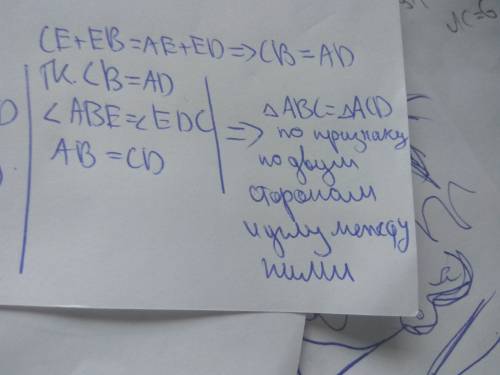 CE+EB=AE+ED=>CB=AD
Т.К. CB=AD
∠ABE=∠EDC
AB=CD
=>
△ABC=△ACD
по признаку
по двум
сторонам
и углу между
ними